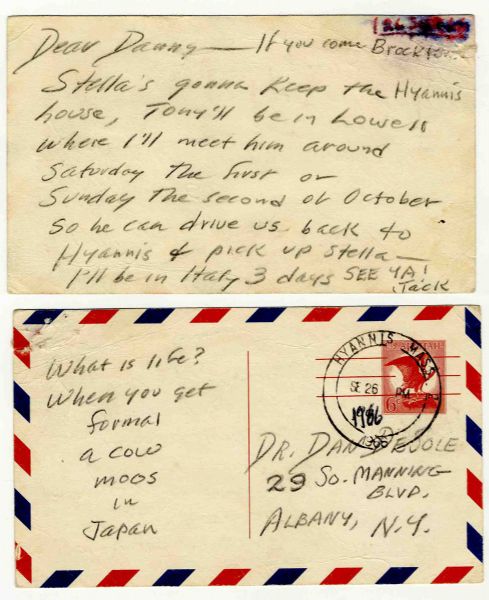 Dear Danny — If you come Brockton
Stella's gonna keep the Hyannis
house, Tony'll be in Lowell
where I'll meet him around
Saturday the first or
Sunday the second of October
so he can drive us back to
Hyannis & pick up Stella —
I'll be in Italy 3 days SEE YA!
Jack
What is life?
When you get
formal
a cow
moos
in
Japan
HYANNIS MASS
SE 26 PM
1966
1966
6¢
DR. DAN DESOLE
29 So. MANNING
BLVD.
ALBANY, N.Y.